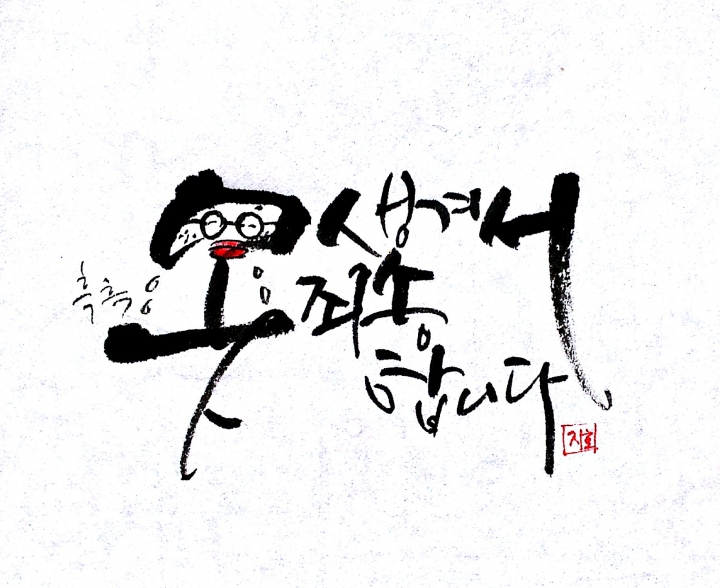 못생겨서
죄송
합니다
흑흑
지희